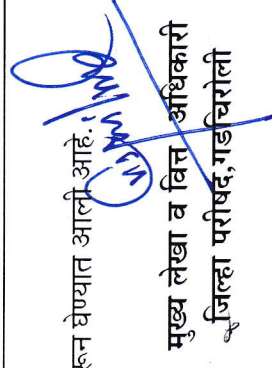 रून घेण्यात आली आहे.
मुख्य लेखा व वित्त अधिकारी
जिल्हा परीषद, गडचिरोली